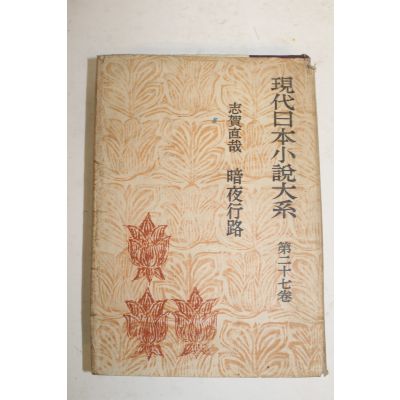 現代日本小說大系
第二十七卷
志賀直哉
暗夜行路